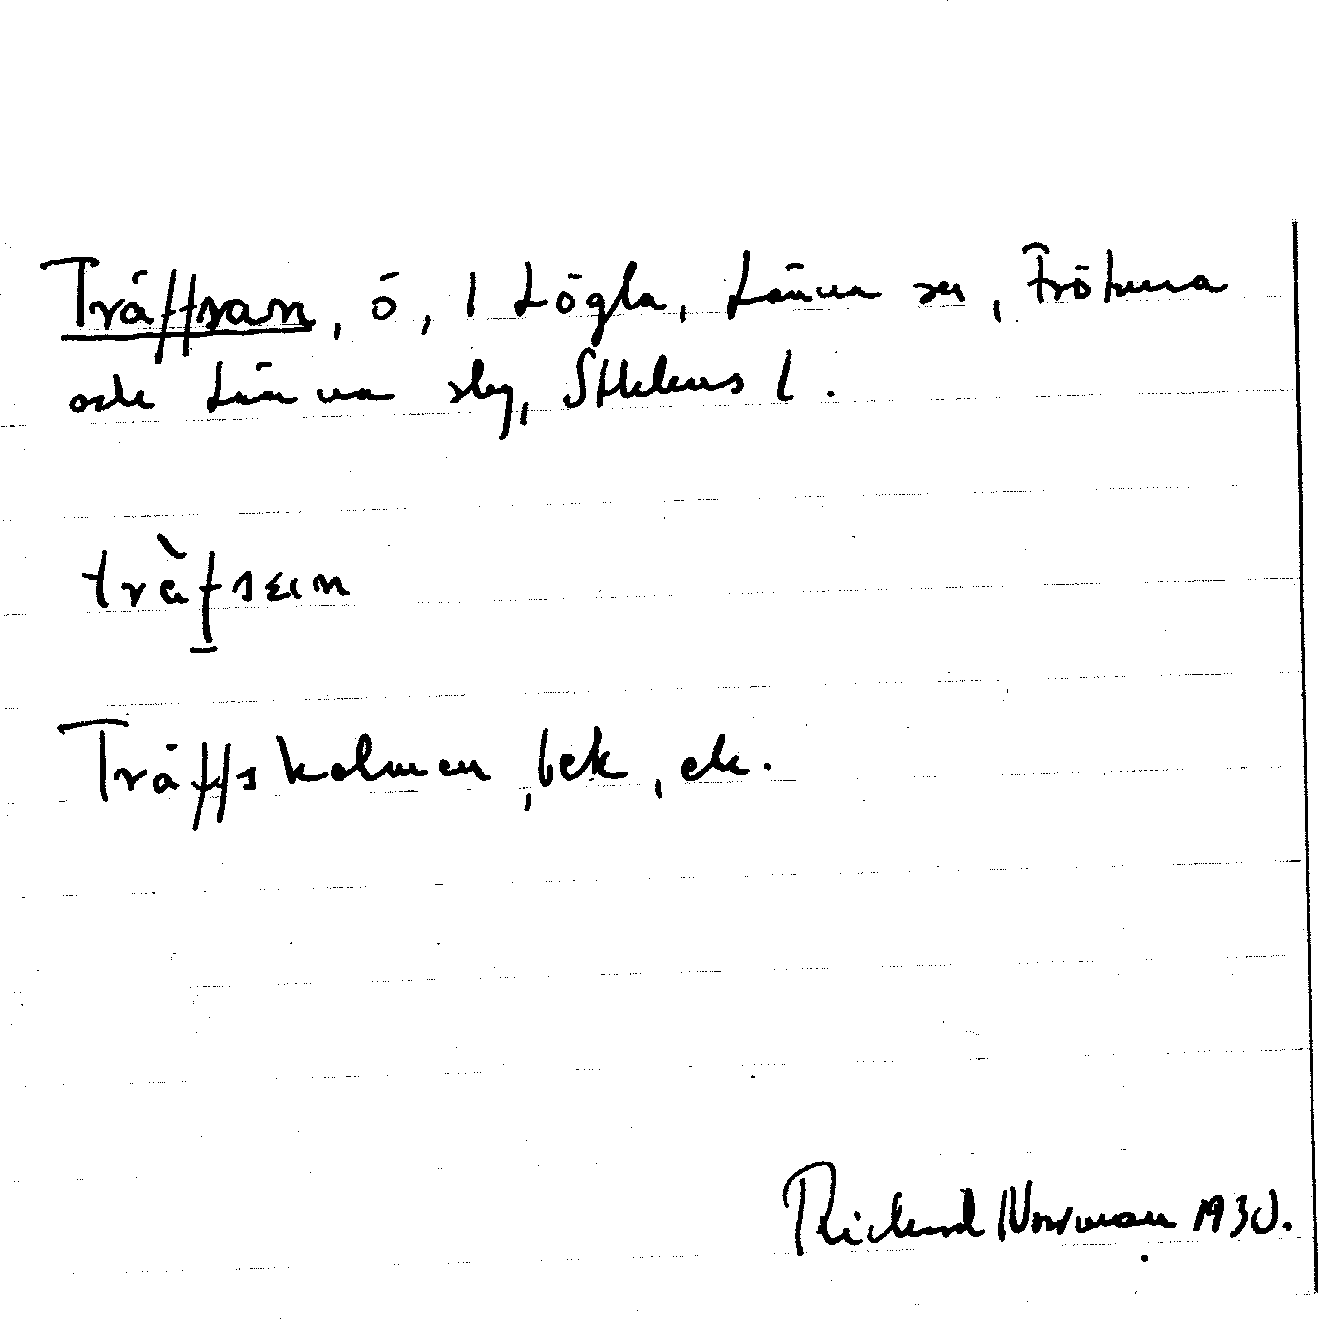 Träffsan, ö, i Högla, Länna sn, Frötuna
och Länna slg, Sthlms l.
träfsan
Träffskolmen, bek, ek.
Rickard Norrman 1930.